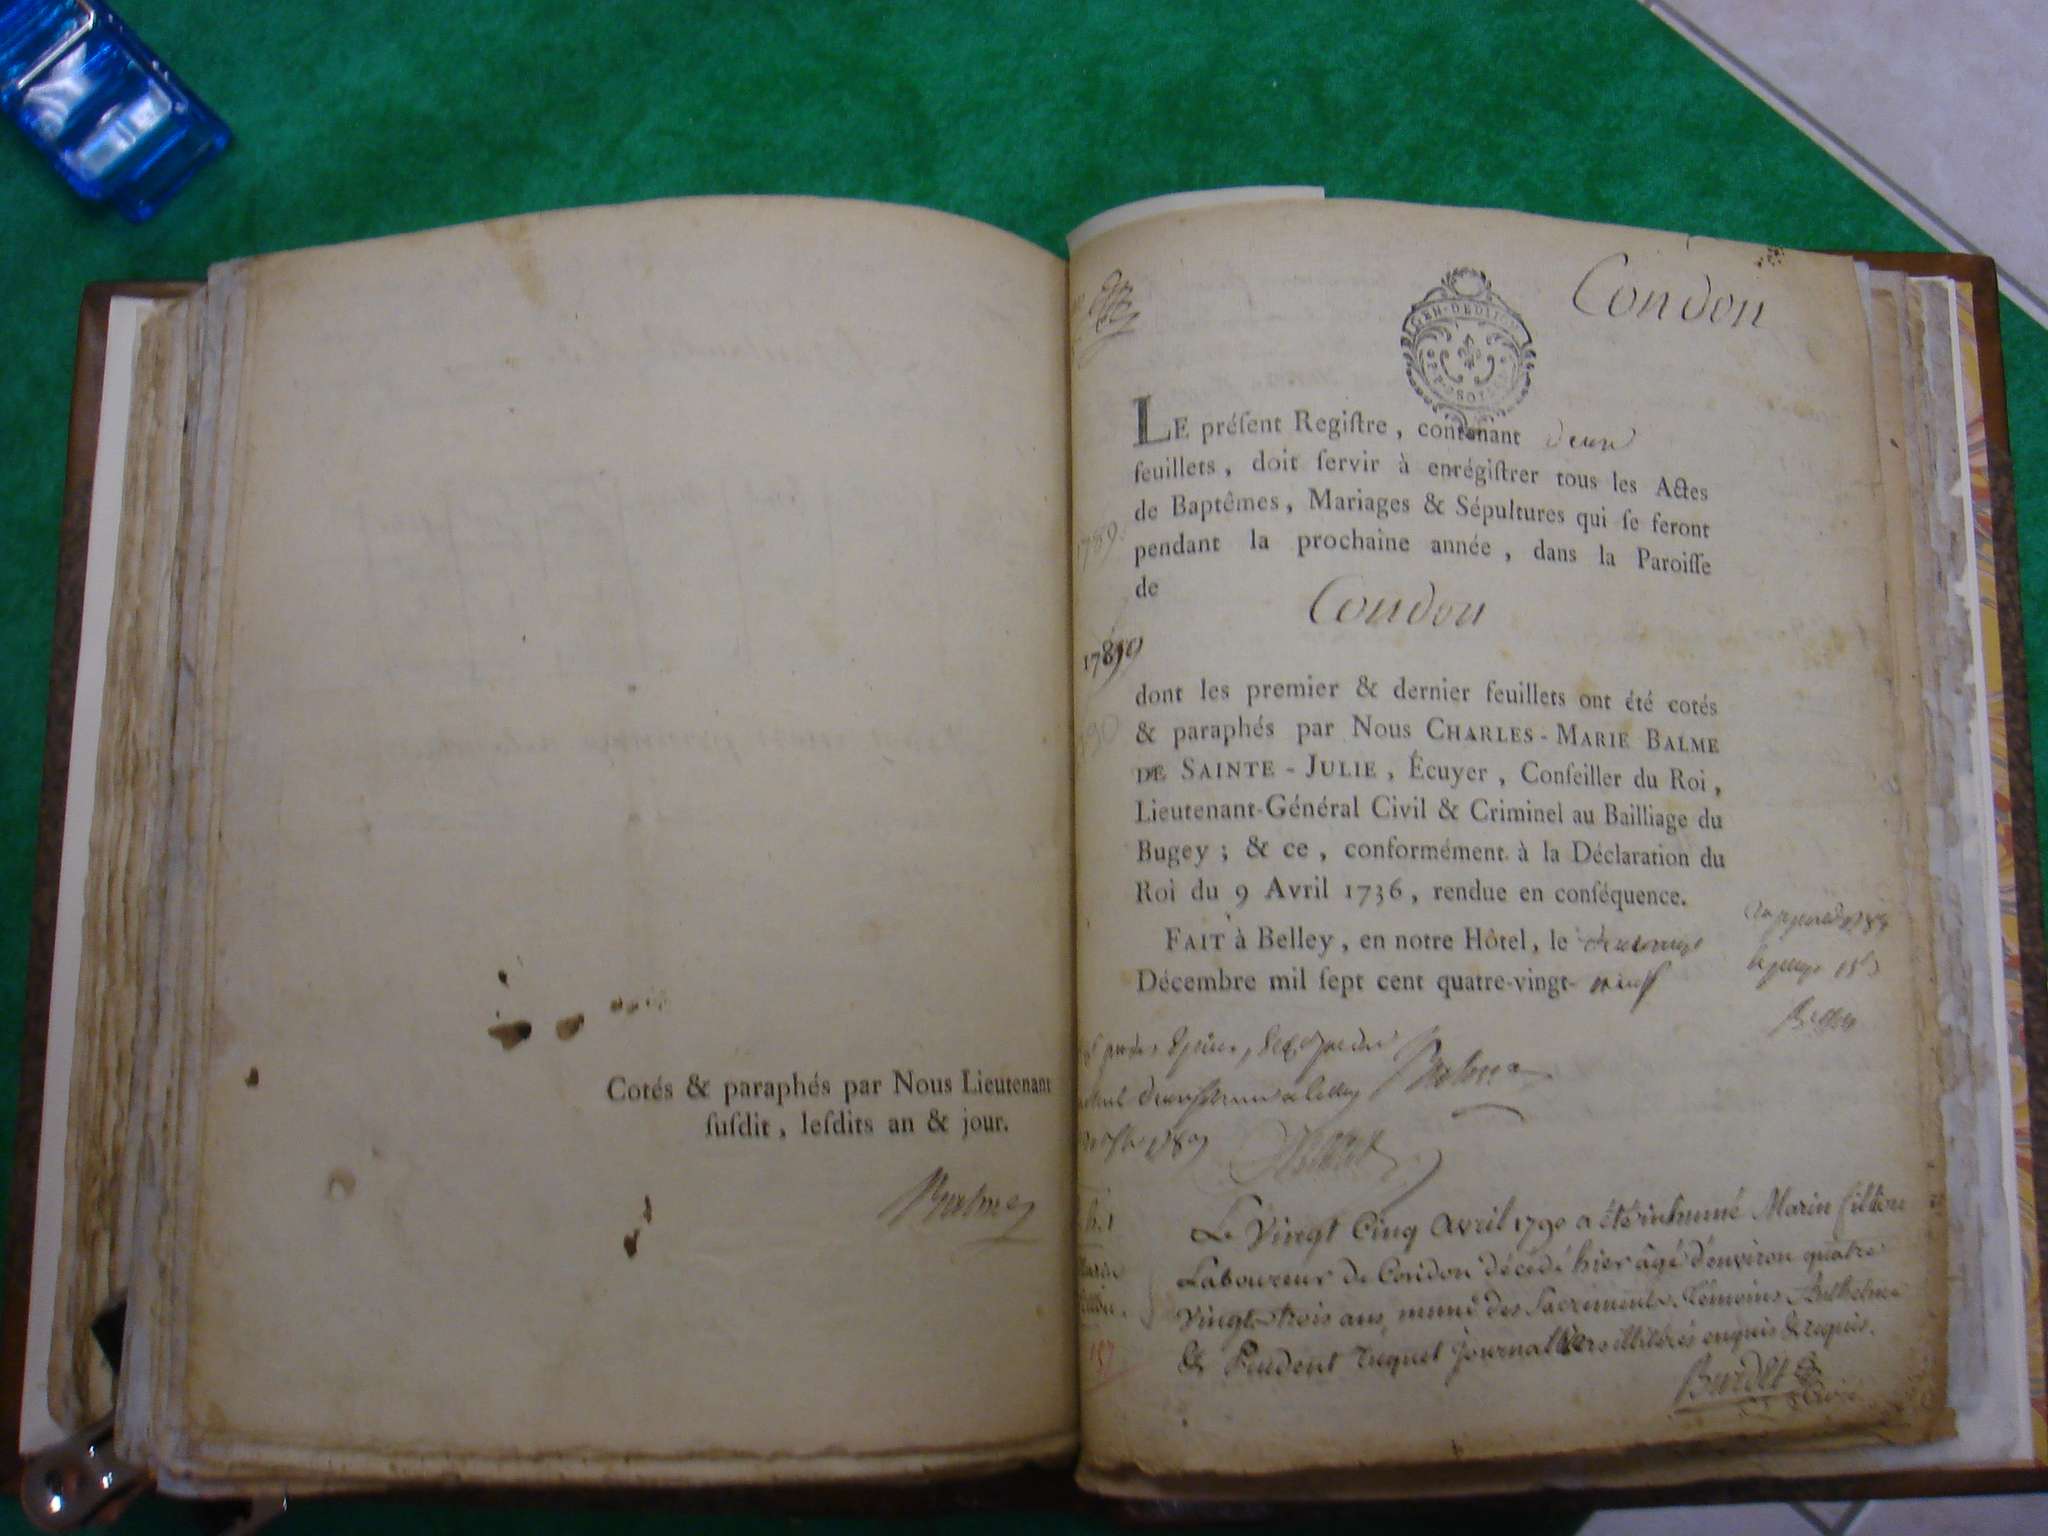 Cotés & paraphés par Nous Lieutenant
ſuſdit, leſdits an & jour.
Balme
Condon
GEN·DEDIJON
LE préſent Regiſtre, contenant deux
feuillets, doit ſervir à enrégiſtrer tous les Actes
de Baptêmes, Mariages & Sépultures qui ſe feront
pendant la prochaine année, dans la Paroiſſe
de
Condon
1789
1790
dont les premier & dernier feuillets ont été cotés
& paraphés par Nous CHARLES-MARIE BALME
DE SAINTE-JULIE, Écuyer, Conſeiller du Roi,
Lieutenant-Général Civil & Criminel au Bailliage du
Bugey; & ce, conformément à la Déclaration du
Roi du 9 Avril 1736, rendue en conſéquence.
FAIT à Belley, en notre Hôtel, le
Décembre mil ſept cent quatre-vingt-neuf
Balme
1789
Le Vingt Cinq Avril 1790 a été inhumé Marin fillion
Laboureur de Condon décédé hier âgé d'environ quatre
Vingt-trois ans, muni des Sacrements. Témoins Anthelme
& Prudent Tuquet journaliers illitérés enquis & requis.
Burdet